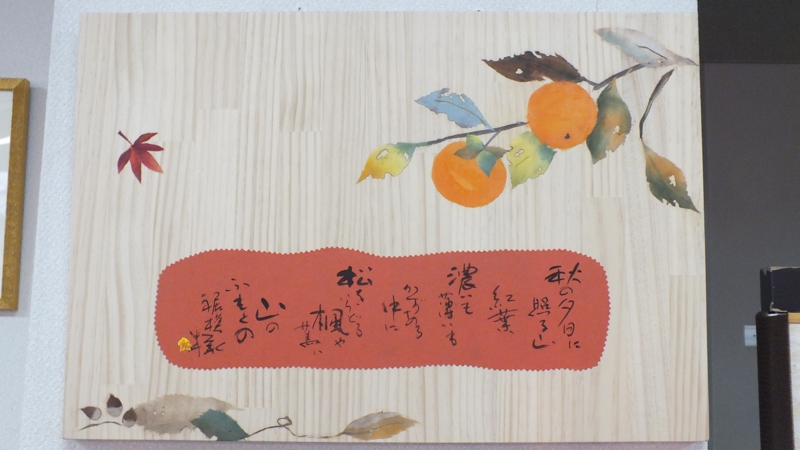 秋の夕日に
照る山
紅葉
濃いも
薄いも
かずある
中に
松をいろどる
楓や
蔦は
山の
ふもとの
裾模様